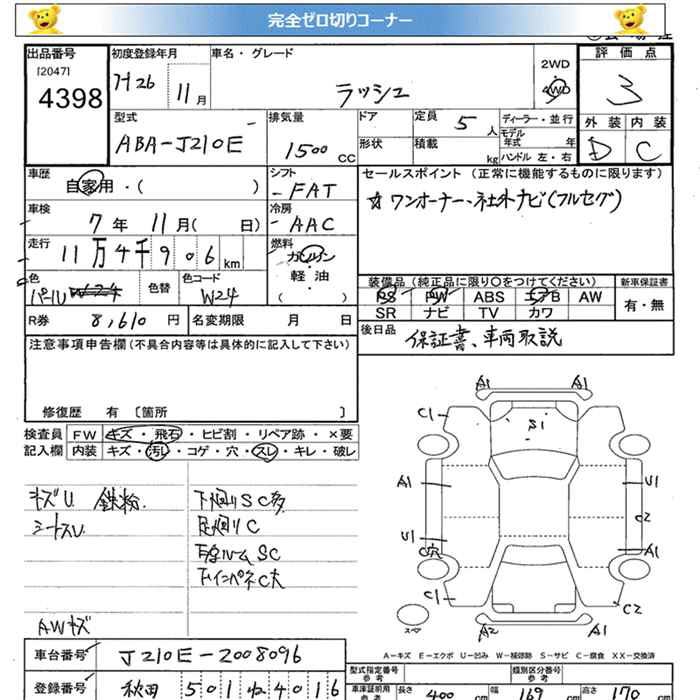 完全ゼロ切りコーナー
出品番号 初度登録年月 車名・グレード 評価点
[2047]
4398
H26 11月
ラッシュ
2WD
4WD
3
外装 内装
D C
型式 排気量 ドア 定員 5人 ディーラー・並行
ABA-J210E 1500cc 形状 積載 kg モデル年式 年
ハンドル 左・右
車歴 自家用・( )
シフト -FAT
セールスポイント (正常に機能するものに限ります)
☆ワンオーナー、社外ナビ(フルセグ)
車検 7年 11月( 日)
冷房 -AAC
走行 11万4千906km
燃料 ガソリン
軽・油
( )
色 パール W24
色替
色コード W24
装備品(純正品に限り〇をつけてください) 新車保証書
PS PW ABS エアB AW
SR ナビ TV カワ
有・無
R券 8,610円 名変期限 月 日
後日品 保証書、車両取説
注意事項申告欄(不具合内容等は具体的に記入して下さい)
修復歴 有 〔箇所 〕
検査員 FW キズ・飛石・ヒビ割・リペア跡・×要
記入欄 内装 キズ・汚レ・コゲ・穴・スレ・キレ・破レ
キズU 鉄粉
シートスレ
AWキズ
下廻りSC多
足廻りC
SC
C大
A1 A1
C1
S1
A1 U1
C2
U1
C穴 A1
C1 C2
A2 A1
A-キズ E-エクボ U-凹み W-補修跡 S-サビ C-腐食 XX-交換済
車台番号 J210E-2008096
型式指定番号 参考
類別区分番号 参考
登録番号 秋田 501 ね 4016
車庫証明用 参考 長さ 400cm 幅 169cm 高さ 170cm